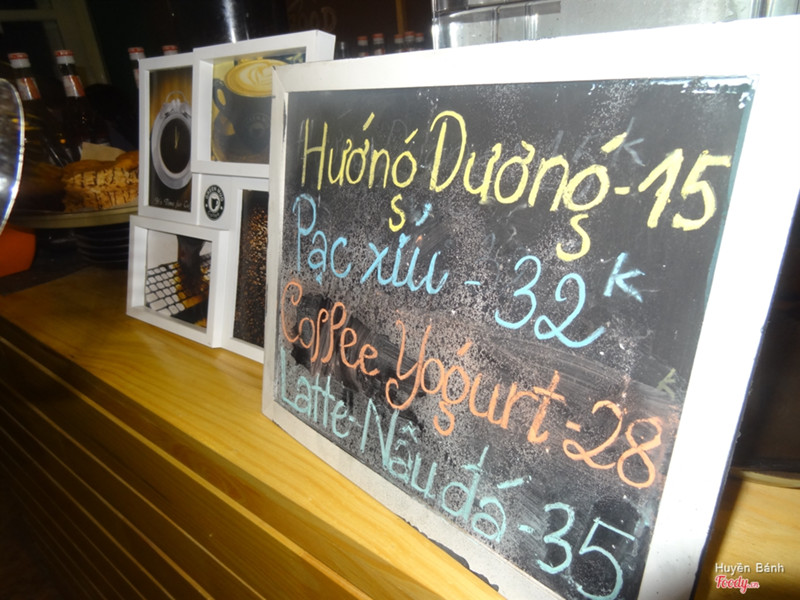 Hướng Dương - 15 k
Pạc xỉu - 32 k
Coffee Yogurt - 28 k
Latte - Nâu đá - 35
Huyền Bánh
Foody.vn